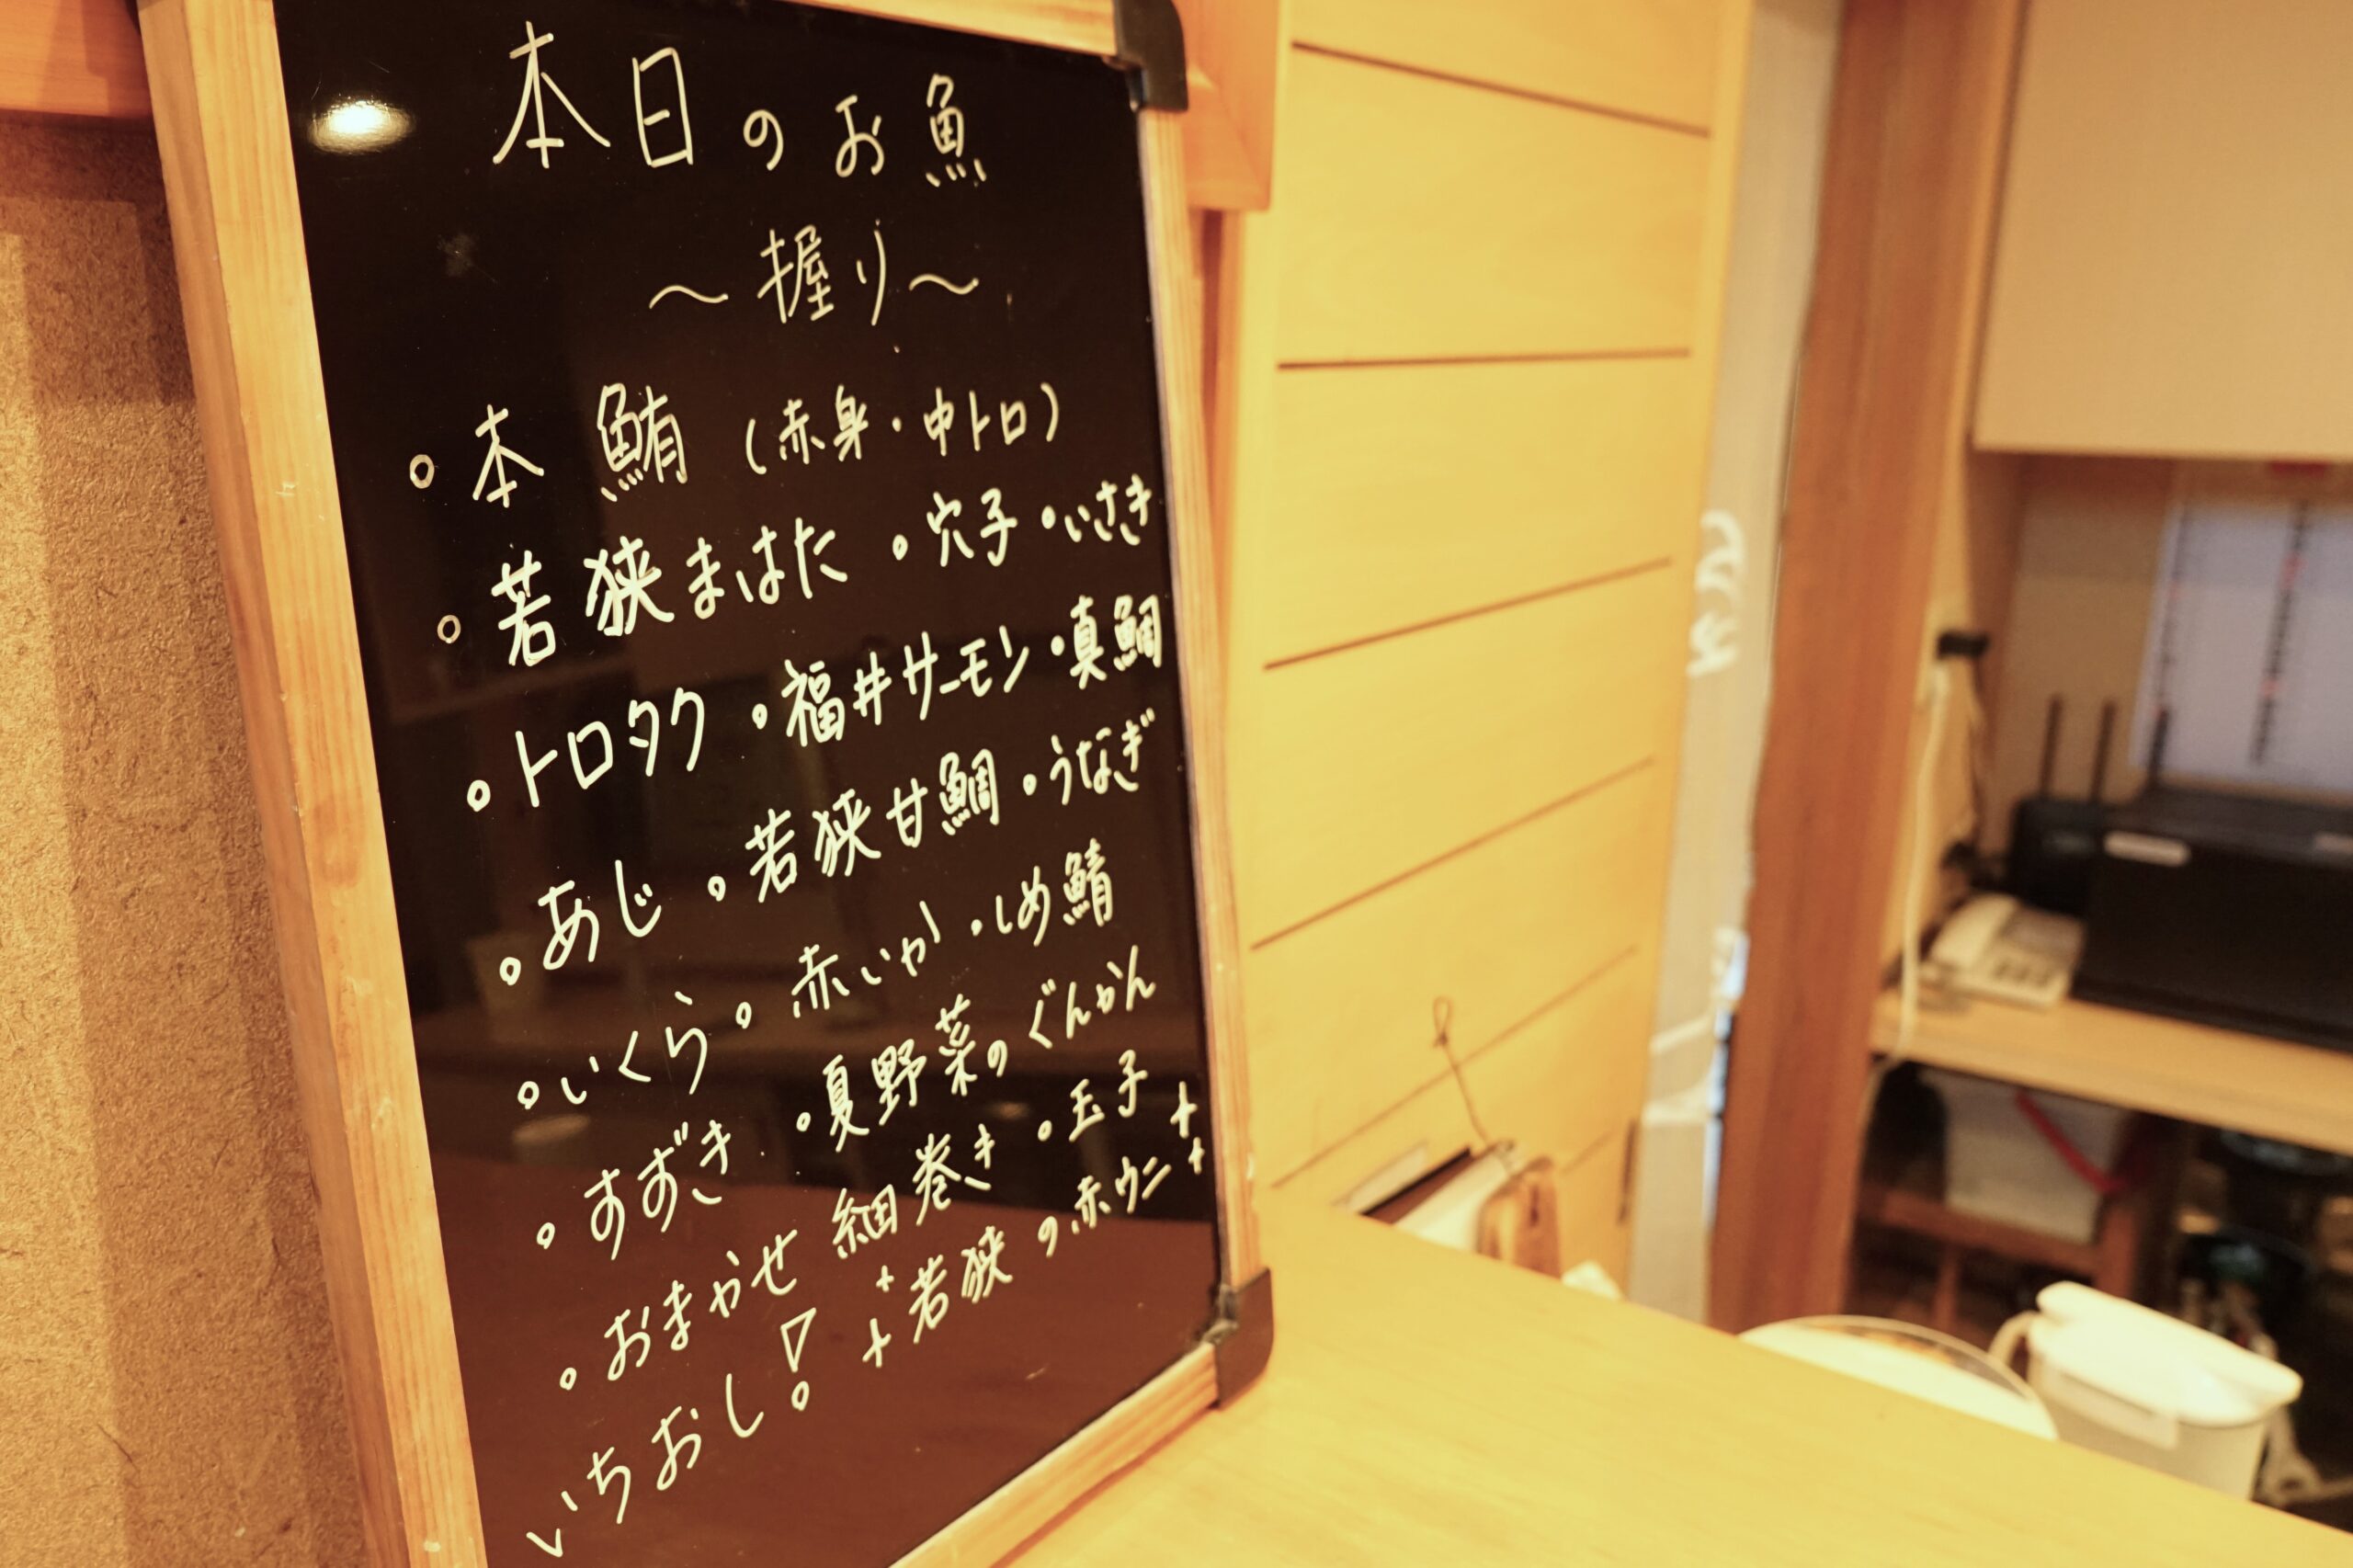 本日のお魚
〜握り〜
。本鮪(赤身・中トロ)
。若狭まはた 。穴子 ・いさき
。トロタク 。福井サーモン ・真鯛
。あじ 。若狭甘鯛 。うなぎ
。いくら 。赤いか ・しめ鯖
。すずき 。夏野菜のぐんかん
。おまかせ細巻き 。玉子
いちおし! 若狭の赤ウニ